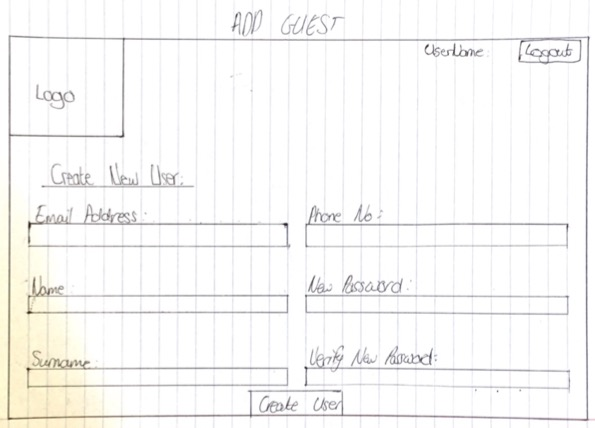 ADD GUEST
UserName: Logout
Logo
Create New User:
Email Address: Phone No:
Name: New Password:
Surname: Verify New Password:
Create User